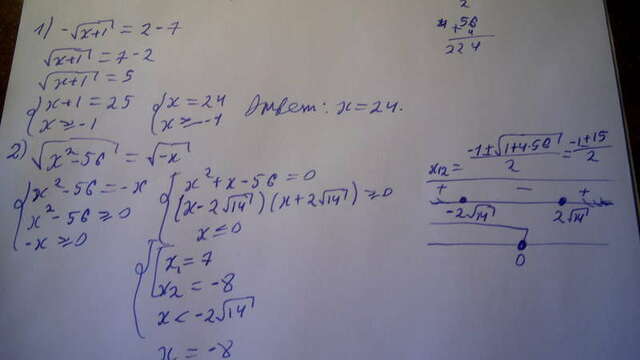 1) -√(x+1) = 2-7
√(x+1) = 7-2
√(x+1) = 5
{ x+1 = 25 { x = 24 Ответ: x = 24.
{ x ≥ -1 { x ≥ -1
2) √(x²-56) = √(-x)
{ x²-56 = -x { x²+x-56 = 0
{ x²-56 ≥ 0 { (x-2√14)(x+2√14) ≥ 0
{ -x ≥ 0 { x ≤ 0
{ [ x₁ = 7
[ x2 = -8
x < -2√14
x = -8
2
56
4
224
x12 = (-1±√(1+4·56))/2 = (-1±15)/2
+ - +
-2√14 2√14
0